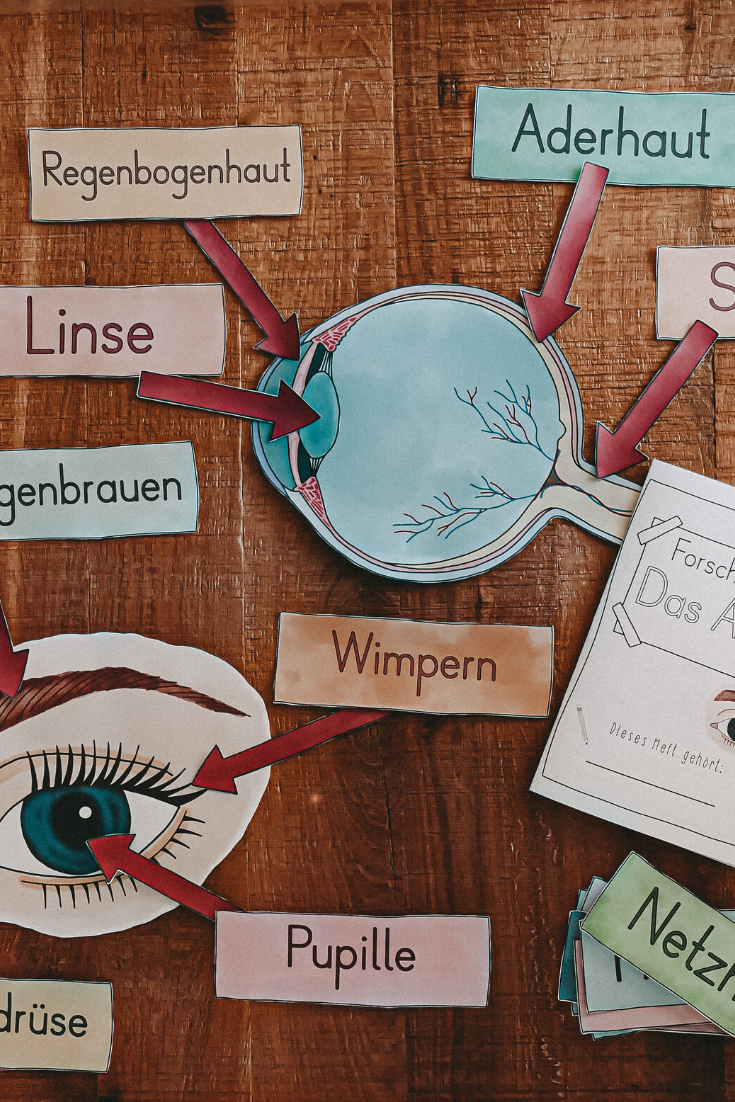 Aderhaut
Regenbogenhaut
S
Linse
genbrauen
Forsch
Das A
Wimpern
Dieses Heft gehört:
Pupille
Netzh
drüse